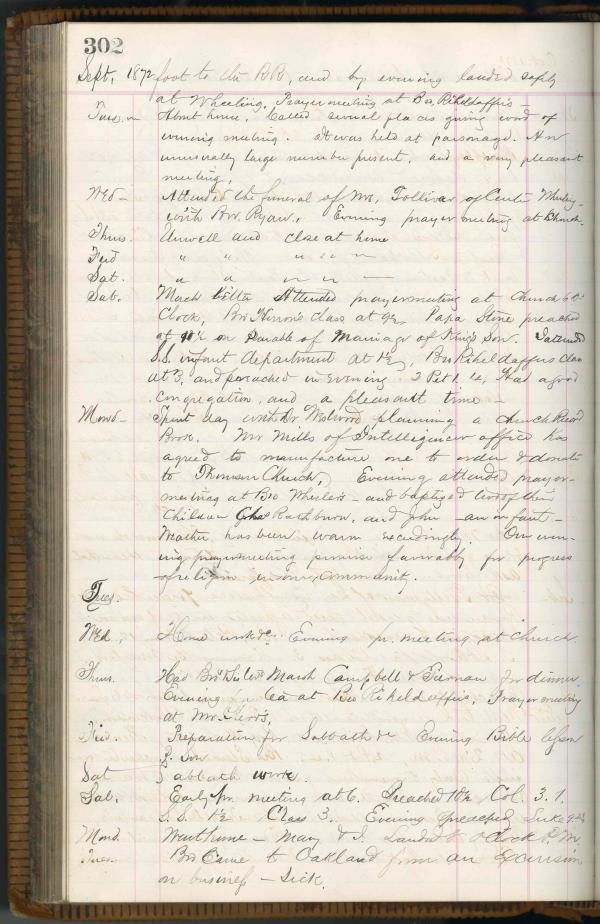 302
Sept, 1872 foot to the RR, and by evening landed safely
at Wheeling, Prayer meeting at Bro, Rikeldaffris –
Tues. – About home, Called several places giving word of
evening meeting. It was held at parsonage. An
unusually large number present, and a very pleasant
meeting,
Wed – Attended the funeral of Mr, Tolliver of Centre Wheeling
with Bro. Ryan, Evening prayer meeting at Church.
Thurs. Unwell and close at home
Frid " " " " "
Sat. " " " "
Sab. Attended prayermeeting at Church 6 O
Clock, Bro class at 9½ Papa Stine preached
at 10½ on Parable of Marriage of King's Son.
S.S. infant department at 1½, Bro Rikeldaffers class
at 3, and preached in evening. 2 Pet 1. 4, Had a good
congregation, and a pleasant time –
Mond – Spent day with Dr Westwood planning a Church Record
Book. Mr Mills of Intelligencer office has
agreed to manufacture one to order & donate
to Thomson Church, Evening attended prayer-
meeting at Bro Wheeler's – and baptized two of their
children Chas Rathburn, and John – an infant –
Weather has been warm exceedingly. Our even-
ing prayermeeting promise favorably for progress
of religion in our community.
Tues.
Wed, Home work &c. Evening pr. meeting at Church.
Thurs. Had Bro's Marsh Campbell & for dinner
Evening tea at Bro Rikeldaffers, Prayer meeting
at Mr.
Frid. Preparation for Sabbath &c Evening Bible lesson
Sat Sabbath work.
Sab. Early pr. meeting at 6. Preached 10½ Col. 3. 1.
S. S. 1½ Class 3. Evening preached, Luke
Mond. Went home – Mary & I. oclock P. M.
Tues. Bro Came to Oakland from an Excursion
on business – Sick.